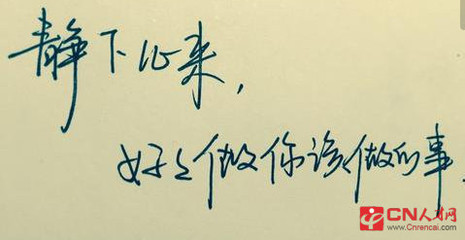 静下心来，
好好做你该做的事.
CN人才网
www.Cnrencai.com